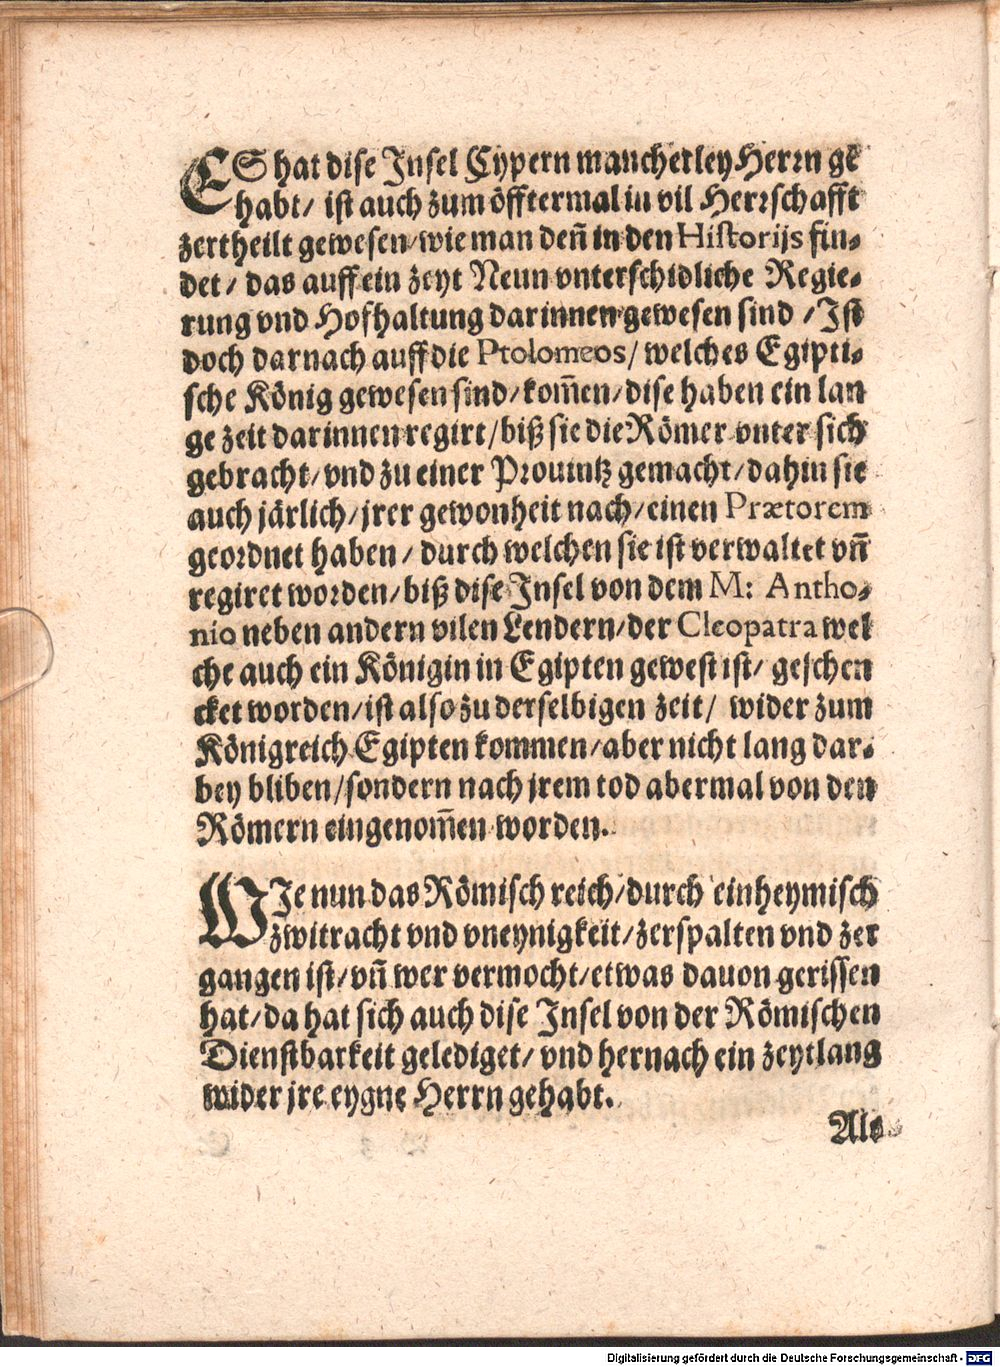 ES hat dise Insel Cypern mancherley Herrn ge
habt/ ist auch zum öfftermal in vil Herrschafft
zertheilt gewesen/wie man deñ in den Historijs fin-
det/ das auff ein zeyt Neun vnterschidliche Regie-
rung vnd Hofhaltung darinnen gewesen sind /Ist
doch darnach auff die Ptolomeos/ welches Egipti-
sche König gewesen sind/kom̃en/dise haben ein lan
ge zeit darinnen regirt/biß sie die Römer vnter sich
gebracht/vnd zu einer Prouintz gemacht/dahin sie
auch järlich/jrer gewonheit nach/einen Prætorem
geordnet haben/ durch welchen sie ist verwaltet vñ
regiret worden/biß dise Insel von dem M: Antho-
nio neben andern vilen Lendern/der Cleopatra wel
che auch ein Königin in Egipten gewest ist/ geschen
cket worden/ist also zu derselbigen zeit/ wider zum
Königreich Egipten kommen/aber nicht lang dar-
bey bliben/sondern nach jrem tod abermal von den
Römern eingenom̃en worden.
WIe nun das Römisch reich/durch einheymisch
zwitracht vnd vneynigkeit/zerspalten vnd zer
gangen ist/vñ wer vermocht/etwas dauon gerissen
hat/da hat sich auch dise Insel von der Römischen
Dienstbarkeit gelediget/ vnd hernach ein zeytlang
wider jre eygne Herrn gehabt.
Als
Digitalisierung gefördert durch die Deutsche Forschungsgemeinschaft - DFG